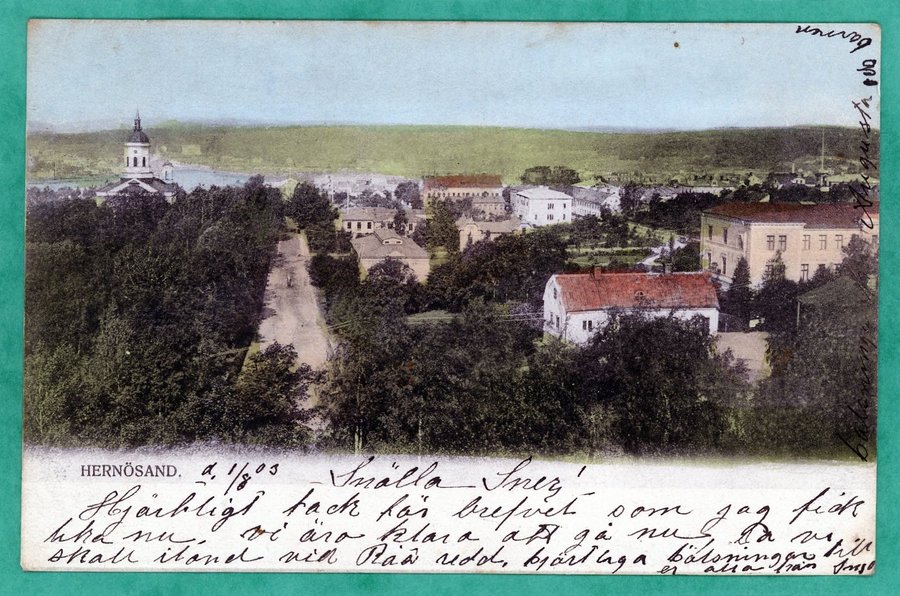 HERNÖSAND. d. 1/8 03
Snälla Snez!
Hjärtligt tack för brefvet som jag fick
nu, vi äro klara att gå nu, då vi
skall iland vid Råå redd, hjärtliga hälsningar till
er alla från
Augusta och
barnen